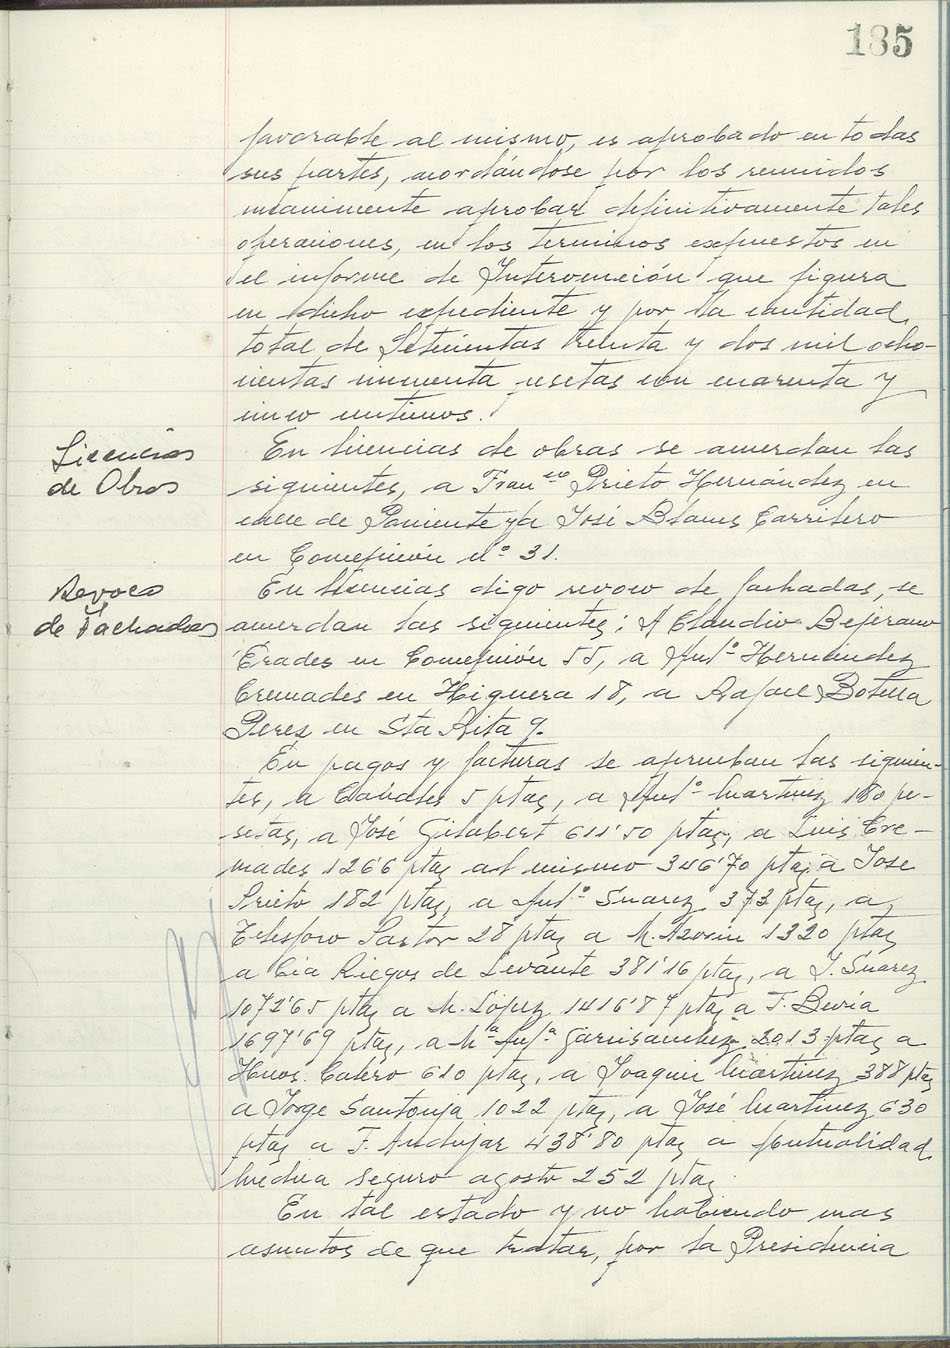 185
favorable al mismo, es aprobado en todas
sus partes, acordándose por los reunidos
unanimente aprobar definitivamente tales
operaciones, en los terminos expuestos en
el informe de Intervención que figura
en dicho expediente y por la cantidad
total de Setecientas treinta y dos mil ocho-
cientas cincuenta pesetas con cuarenta y
cinco centimos.
Licencias
de Obras
En licencias de obras se acuerdan las
siguientes, a Franco Prieto Hernández en
calle de Poniente y a José Blanes Carrillero
en Concepción nº 31.
Revoco
de Fachadas
En licencias digo revoco de fachadas, se
acuerdan las siguientes: A Claudio Bejerano
Erades en Concepción 55, a Antº Hernández
Cremades en Higuera 18, a Rafael Botella
Perez en Sta Rita 9.
En pagos y facturas se aprueban las siguien-
tes, a 5 ptas, a Antº Martinez 180 pe-
setas, a José Gisabert 611'50 ptas, a Luis Cre-
mades 1266 ptas al mismo 346'70 ptas, a Jose
Prieto 182 ptas, a Antº Suarez 373 ptas, a
Telesforo Pastor 28 ptas a M. Azorin 1320 ptas
a Cia Riegos de Levante 381'16 ptas, a J. Suarez
1072'65 ptas a M. López 1416'87 ptas a T. Bevia
1697'69 ptas, a Mª Antª Garcisanchez 2013 ptas a
Hnos. Calero 610 ptas, a Joaquin Martinez 388 ptas
a Jorge Santonja 1022 ptas, a José Martinez 630
ptas a F. Andujar 438'80 ptas a Mutualidad
seguro agosto 252 ptas
En tal estado y no habiendo mas
asuntos de que tratar, por la Presidencia